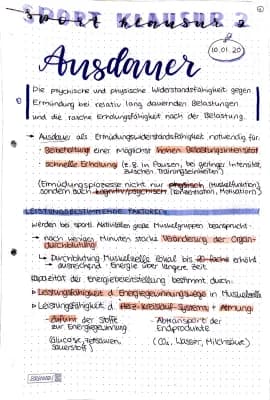 SPORT KLAUSUR 2
10.01.20
Ausdauer
Die psychische und physische Widerstandsfähigkeit gegen
Ermüdung bei relativ lang dauernden Belastungen
und die rasche Erholungsfähigkeit nach der Belastung.
→ Ausdauer als Ermüdungswiderstandsfähigkeit notwendig für:
· Beibehaltung einer möglichst hohen Belastungsintensität
· schnelle Erholung (z.B. in Pausen, bei geringer Intensität,
zwischen Trainingseinheiten)
(Ermüdungsprozesse nicht nur physisch (Muskelfunktion)
sondern auch kognitiv/psychisch (Konzentration, Motivation)
LEISTUNGSBESTIMMENDE FAKTOREN:
werden bei sportl. Aktivitäten große Muskelgruppen beansprucht:
→ nach wenigen Minuten starke Veränderung der Organ-
durchblutung
↳ Durchblutung Muskelzelle lokal bis 20-fache erhöht
ausreichend Energie über längere Zeit
Kapazität der Energiebereitstellung bestimmt durch:
Leistungsfähigkeit d. Energiegewinnungswege in Muskelzelle
Leistungsfähigkeit d. Herz-Kreislauf-Systems + Atmung:
· Zufuhr der Stoffe · Abtransport der
zur Energiegewinnung Endprodukte
(Glucose, Fettsäuren, (CO₂, Wasser, Milchsäure)
Sauerstoff)